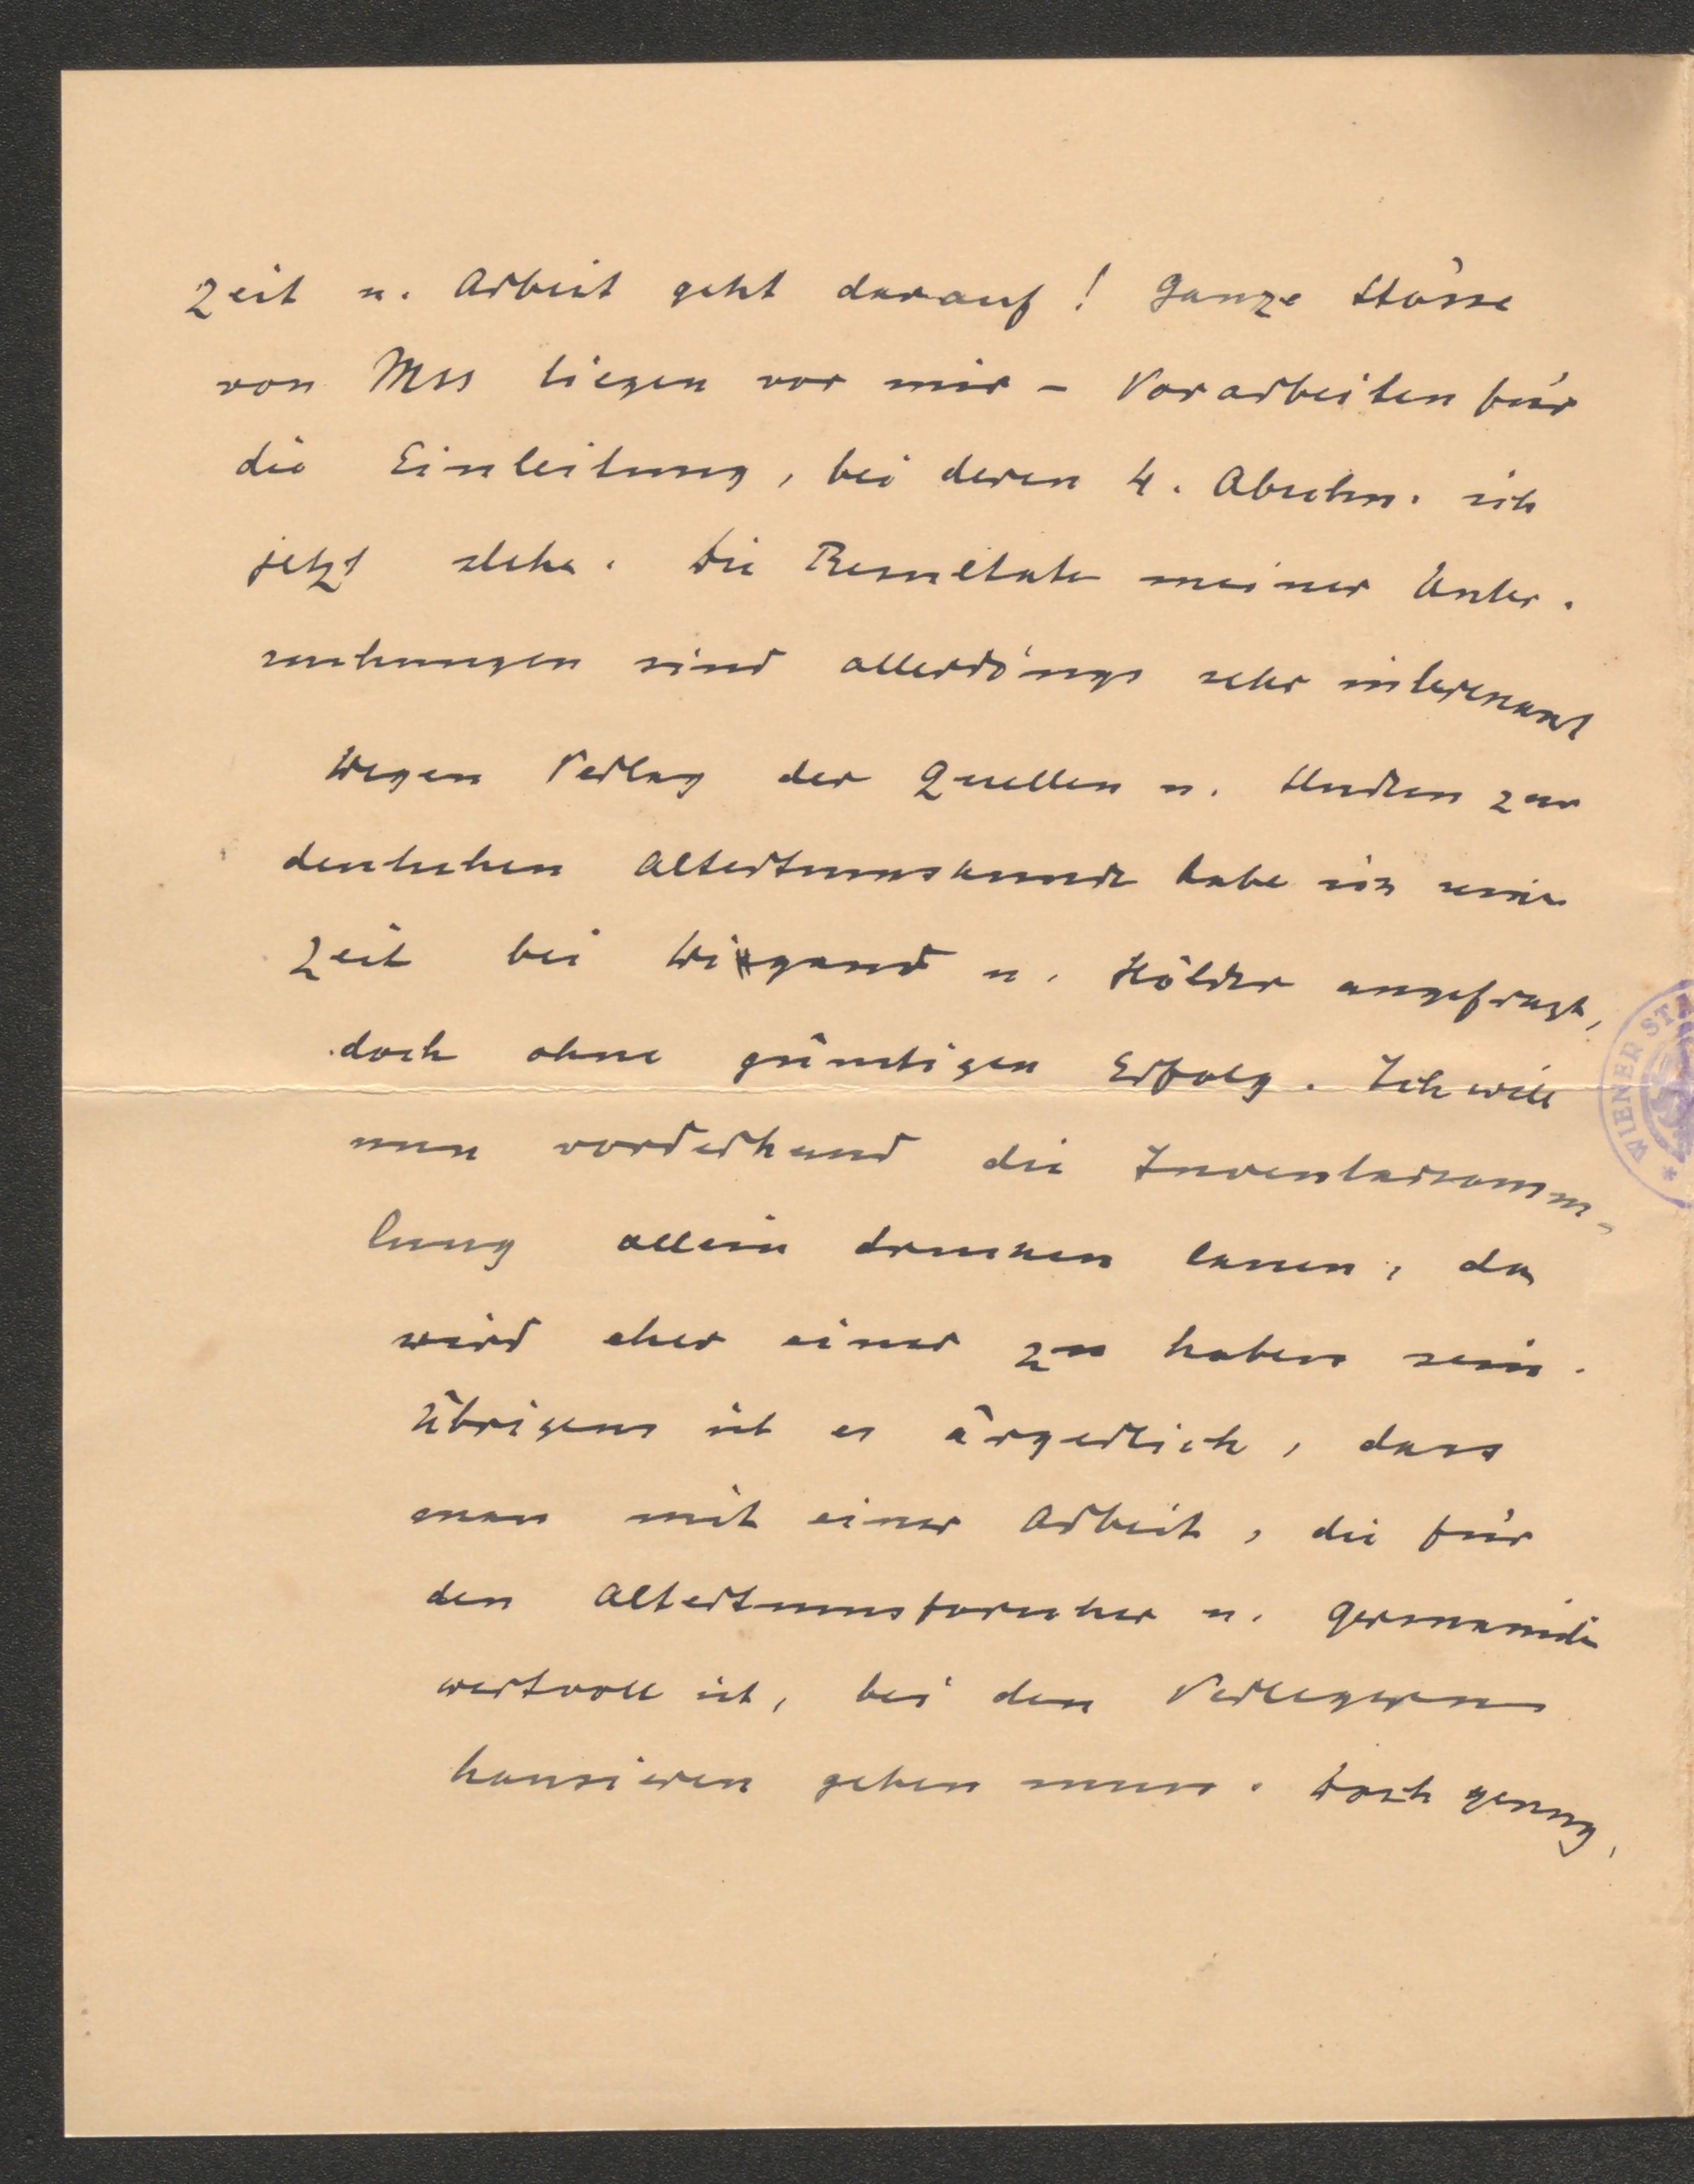 Zeit u. Arbeit geht darauf! Ganze Stösse
von Mss liegen vor mir – Vorarbeiten für
die Einleitung, bei deren 4. Abschn. ich
jetzt stehe. Die Resultate meiner Unter-
suchungen sind allerdings sehr interessant
Wegen Verlag der Quellen u. Studien zur
deutschen Altertumskunde habe ich seiner
Zeit bei Wiegand u. Hölder angefragt,
doch ohne günstigen Erfolg. Ich will
nun vorderhand die Inventarsamm-
lung allein drucken lassen, da
wird eher einer zu haben sein.
Übrigens ist es ärgerlich, dass
man mit einer Arbeit, die für
den Altertumsforscher u. Germanisten
wertvoll ist, bei den Verlegern
hausieren gehen muss. Doch genug,
WIENER STA